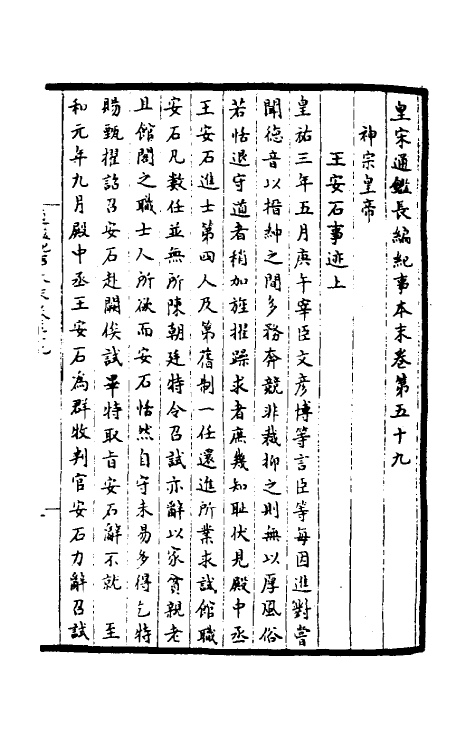 皇宋通鑑長編紀事本末卷第五十九
神宗皇帝
王安石事迹上
皇祐三年五月庚午宰臣文彥博等言臣等每因進對嘗
聞德音以搢紳之間多務奔競非裁抑之則無以厚風俗
若恬退守道者稍加旌擢躁求者庶幾知耻伏見殿中丞
王安石進士第四人及第舊制一任還進所業求試館職
安石凡數任並無所陳朝廷特令召試亦辭以家貧親老
且館閣之職士人所欲而安石恬然自守未易多得乞特
賜甄擢詔召安石赴闕俟試畢特取旨安石辭不就　至
和元年九月殿中丞王安石為群牧判官安石力辭召試